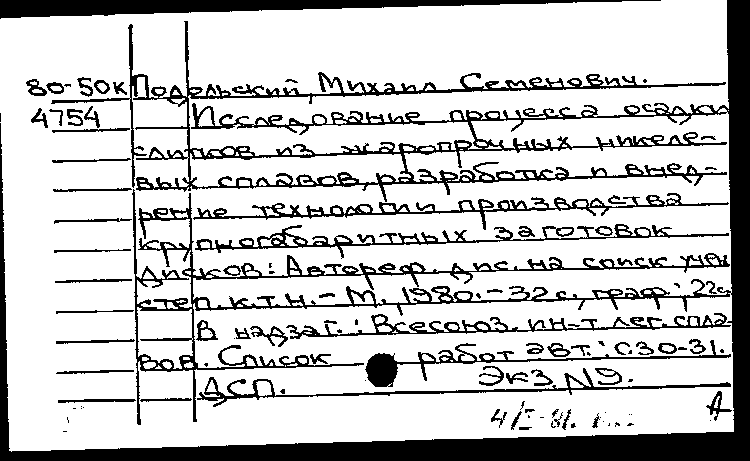 80-50к Подельский, Михаил Семенович.
4754 Исследование процесса осадки
слитков из жаропрочных никеле-
вых сплавов, разработка и внед-
рение технологии производства
крупногабаритных заготовок
дисков: Автореф. дис. на соиск учен
степ. к.т.н. - М., 1980. - 32 с., граф; 22см
В надзаг.: Всесоюз. ин-т лег. спла
вов. Список работ авт.: с.30-31.
ДСП. Экз. №9.
4/I-81. А